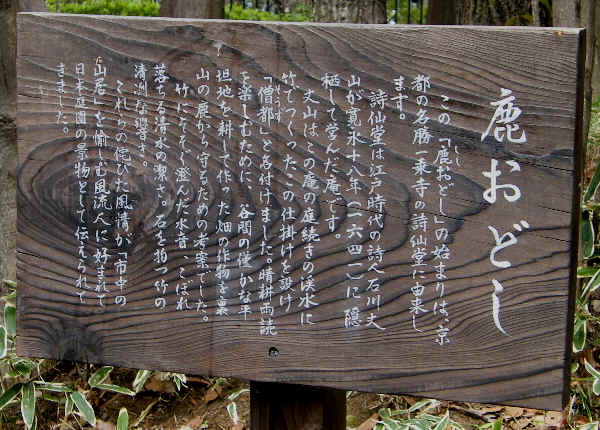 鹿おどし
この「鹿おどし」の始まりは、京
しし
都の名勝一乗寺の詩仙堂に由来し
ます。
詩仙堂は江戸時代の詩人石川丈
山が寛永十八年(一六四一)に隠
栖して学んだ庵です。
丈山はこの庵の庭続きの渓水に
竹でつくったこの仕掛けを設け
「僧都」と名付けました。晴耕雨読
を楽しむために、谷間の僅かな平
坦地を耕して作った畑の作物を裏
山の鹿から守るための考案でした。
竹にそそぐ澄んだ水音、こぼれ
落ちる清水の潔さ。石を拍つ竹の
清冽な響き。
これらの侘びた風情が「市中の
山居」を愉しむ風流人に好まれて
日本庭園の景物として伝えられて
きました。